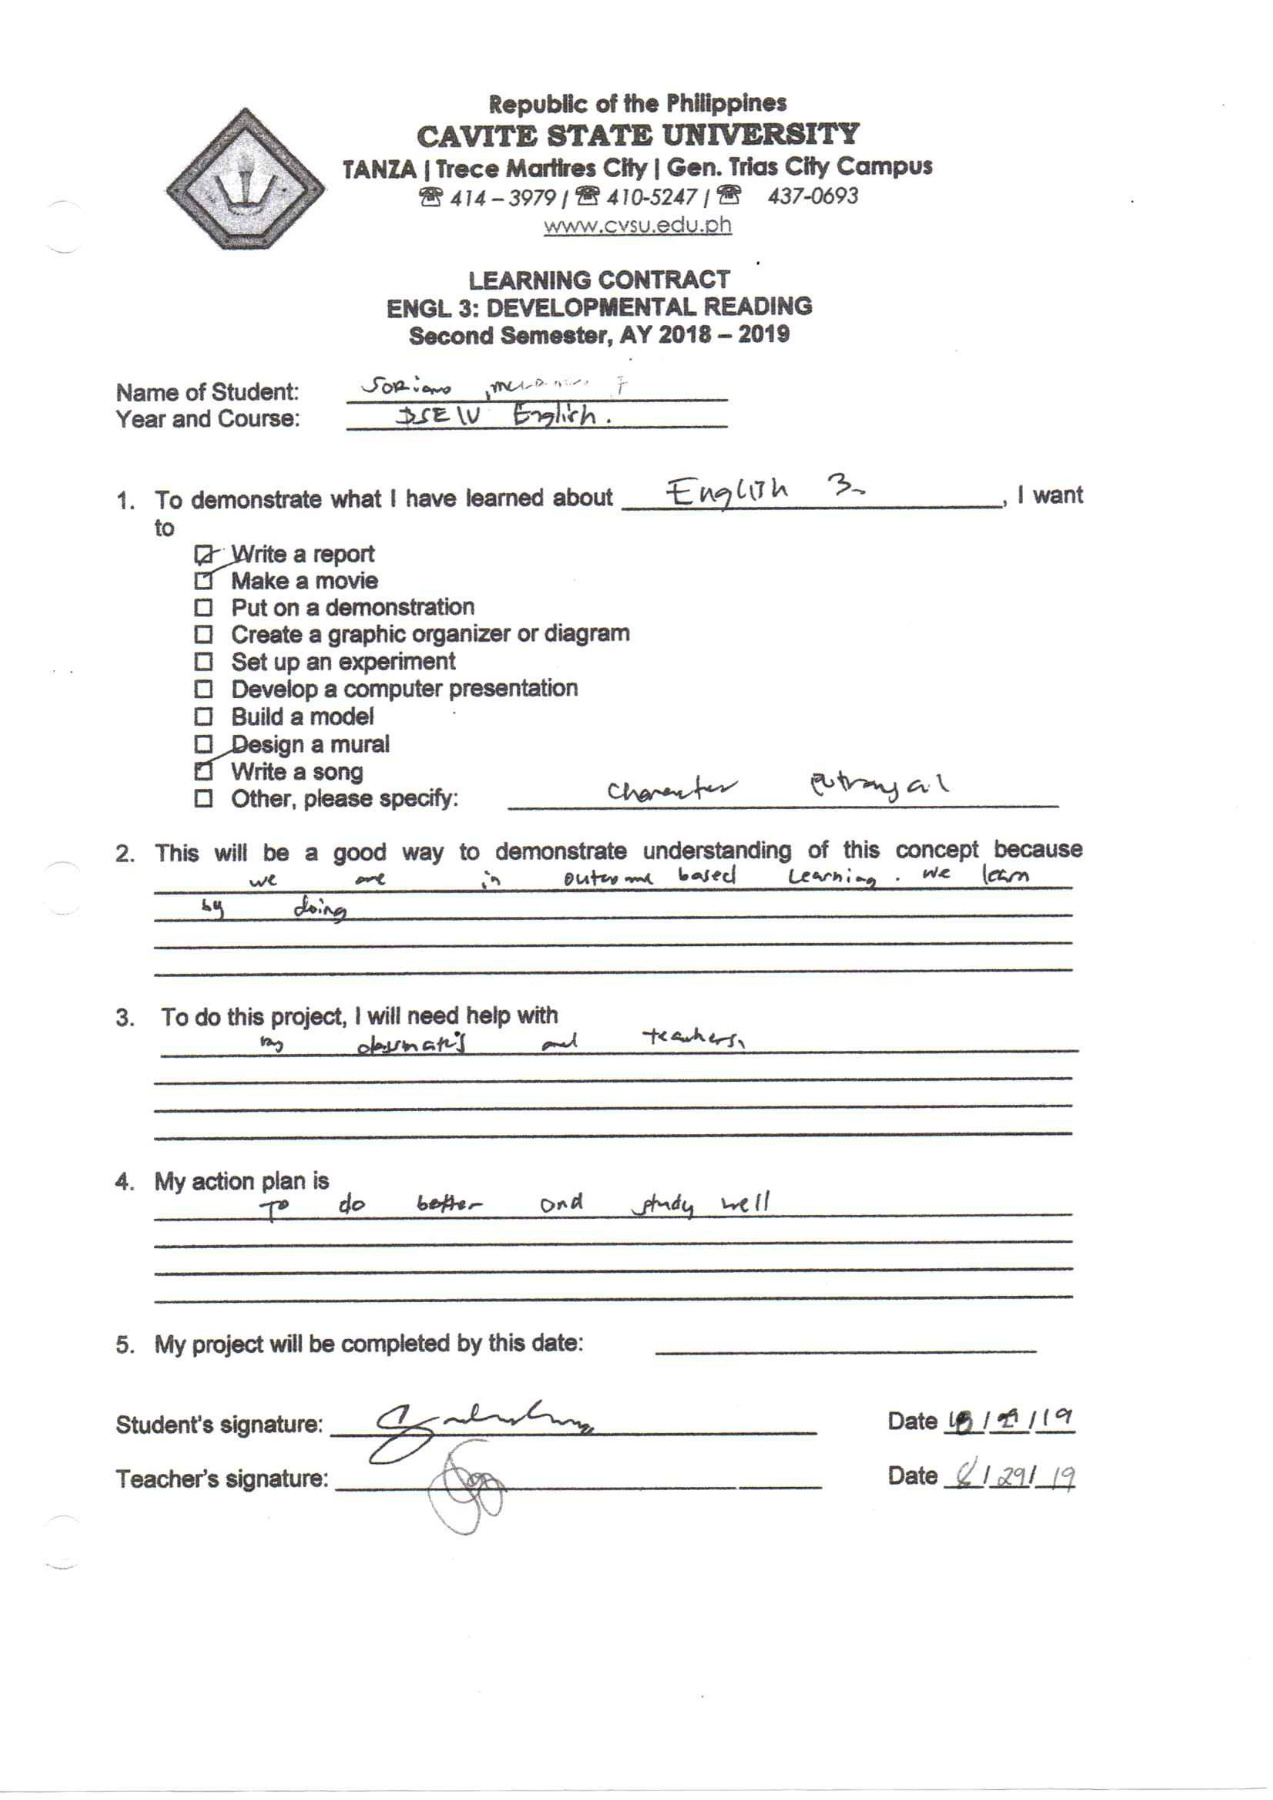 Republic of the Philippines
CAVITE STATE UNIVERSITY
TANZA | Trece Martires City | Gen. Trias City Campus
☎ 414 – 3979 / ☎ 410-5247 / ☎ 437-0693
www.cvsu.edu.ph
LEARNING CONTRACT
ENGL 3: DEVELOPMENTAL READING
Second Semester, AY 2018 – 2019
Name of Student: Soriano,
Year and Course: English.
1. To demonstrate what I have learned about English 3, I want
to
☑ Write a report
☑ Make a movie
☐ Put on a demonstration
☐ Create a graphic organizer or diagram
☐ Set up an experiment
☐ Develop a computer presentation
☐ Build a model
☐ Design a mural
☑ Write a song
☐ Other, please specify: Character
2. This will be a good way to demonstrate understanding of this concept because
we are in outcome based Learning. we learn
by doing
3. To do this project, I will need help with
my and teachers.
4. My action plan is
To do better and study well
5. My project will be completed by this date:
Student's signature: Date / /19
Teacher's signature: Date /29/ 19